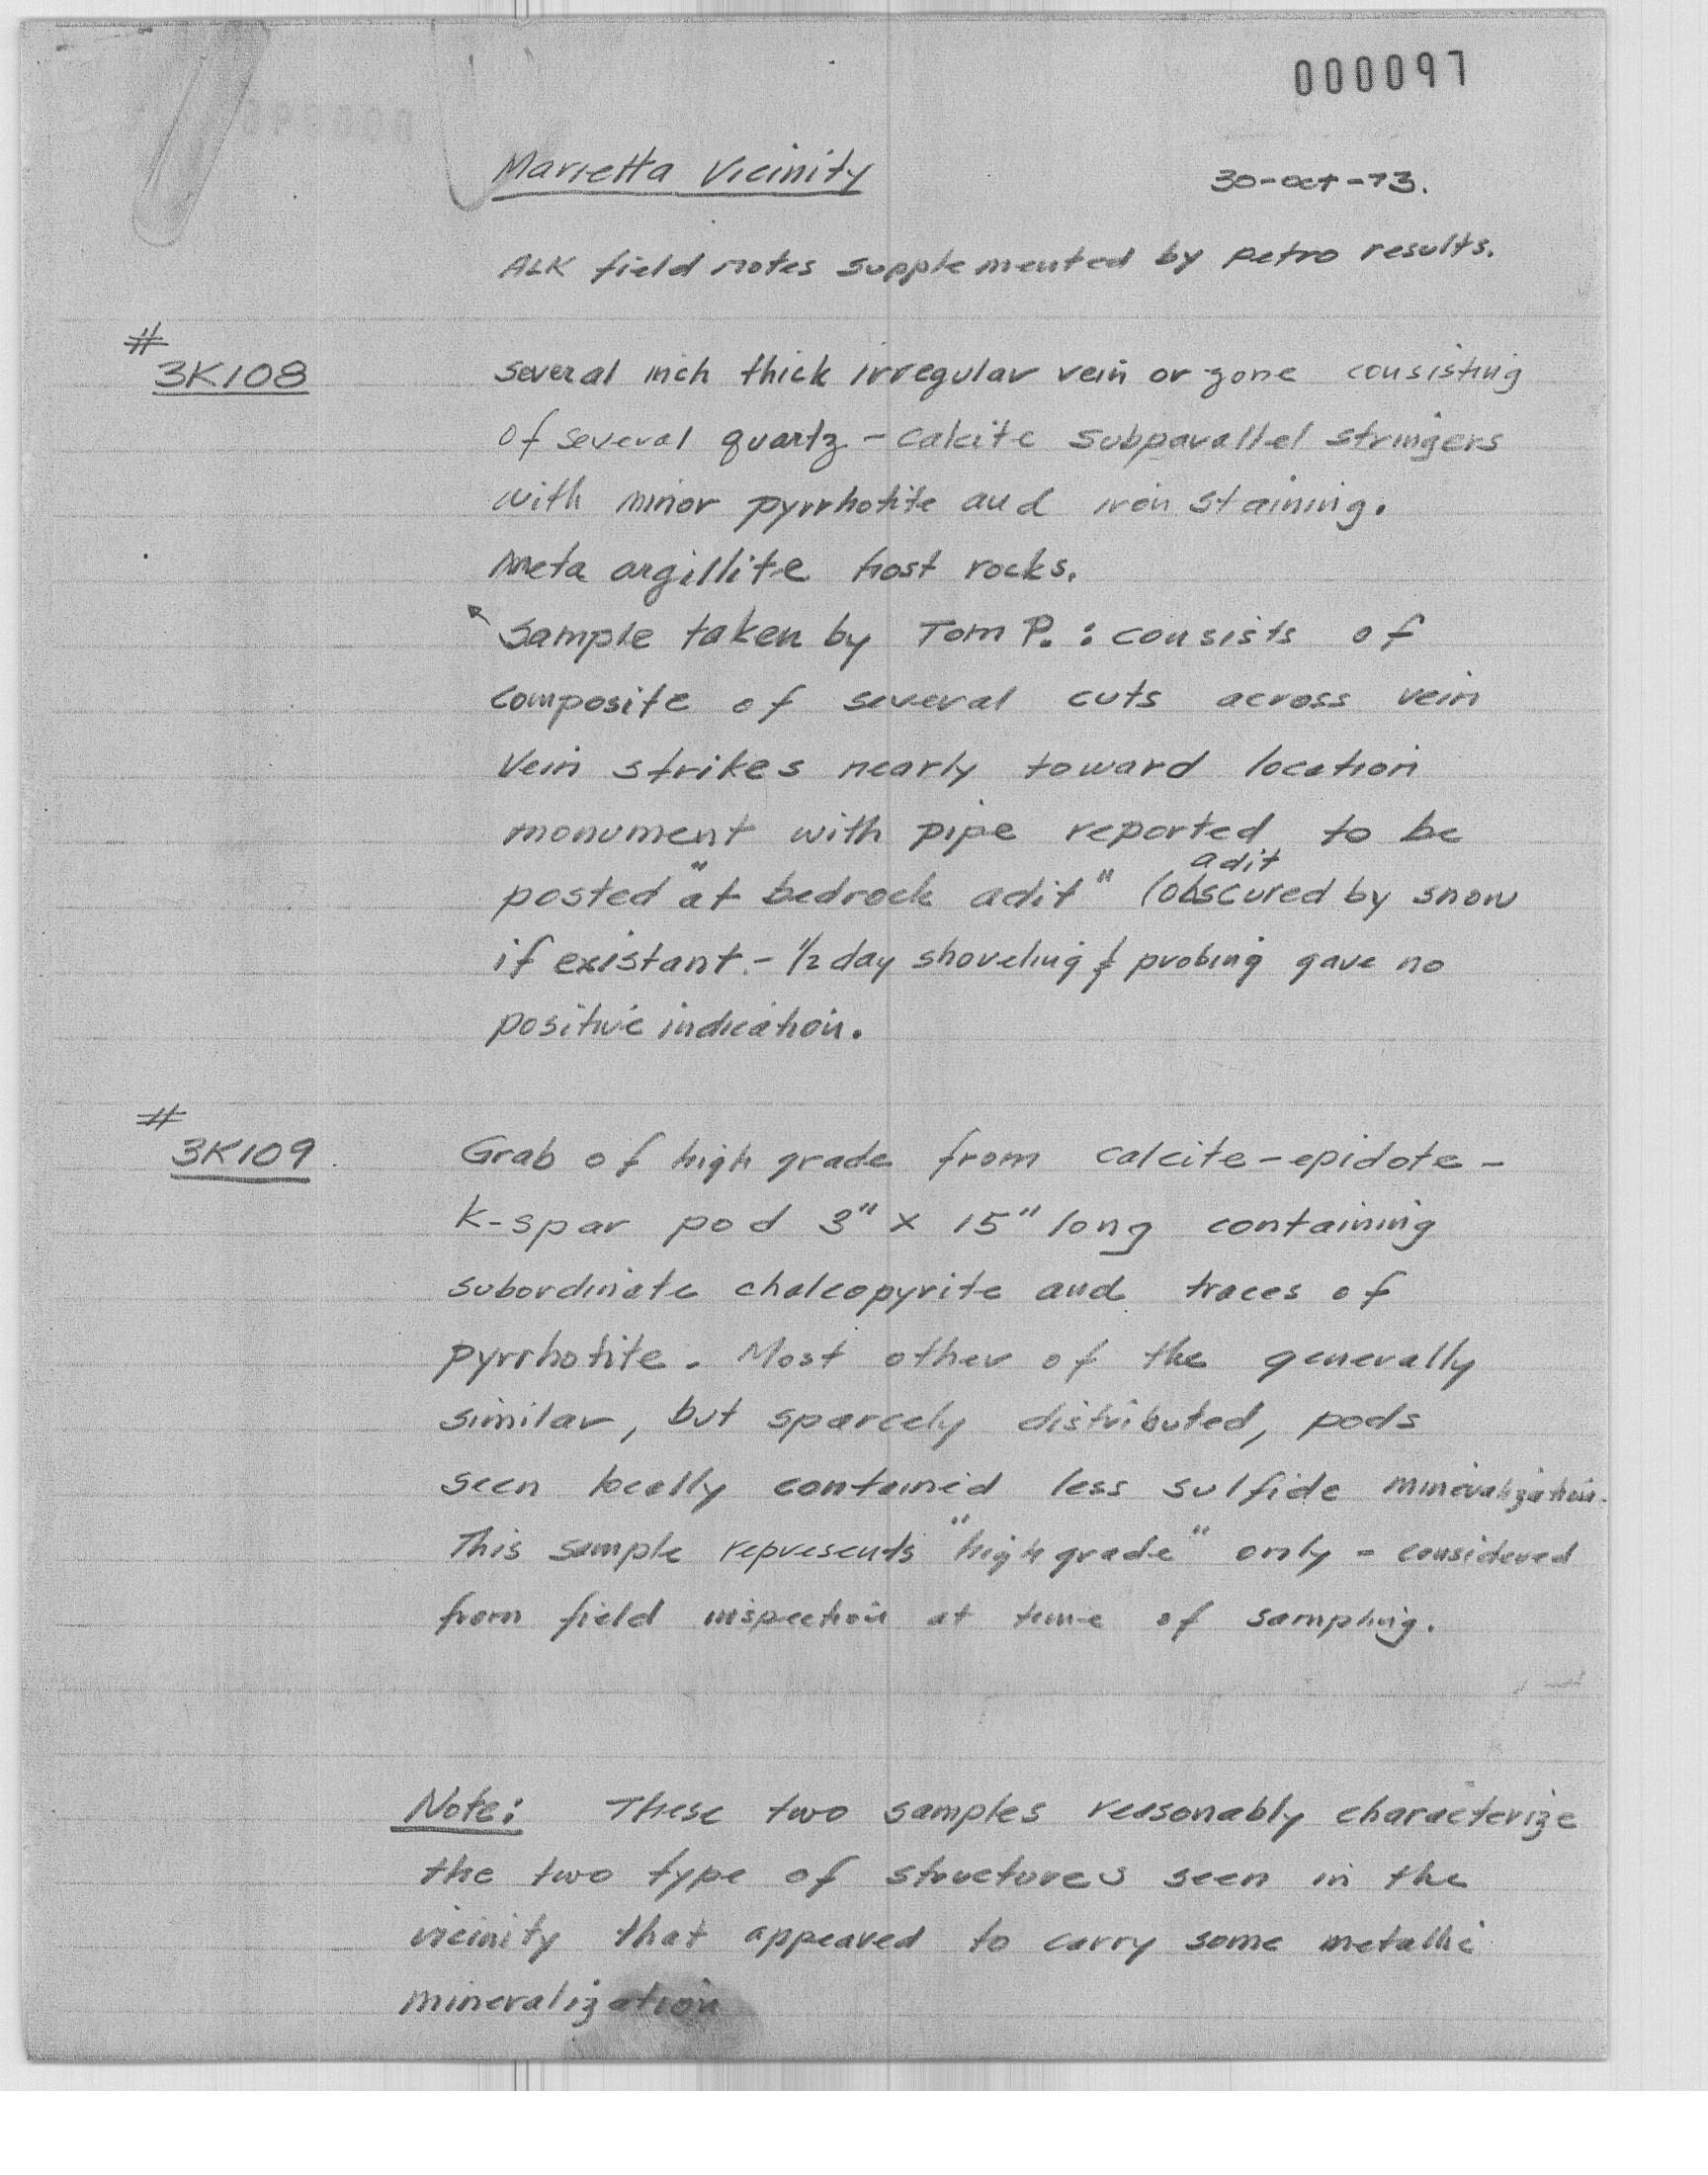 000097
Marietta Vicinity
30-oct-73.
ALK field notes supplemented by petro results.
#
3K108
several inch thick irregular vein or zone consisting
of several quartz - calcite subparallel stringers
with minor pyrrhotite and iron staining.
Meta argillite host rocks.
Sample taken by Tom P. : consists of
composite of several cuts across vein
Vein strikes nearly toward location
monument with pipe reported to be
adit
posted "at bedrock adit" (obscured by snow
if existant. - 1/2 day shoveling & probing gave no
positive indication.
#
3K109
Grab of high grade from calcite-epidote-
K-spar pod 3" x 15" long containing
subordinate chalcopyrite and traces of
pyrrhotite. Most other of the generally
similar, but sparcely distributed, pods
seen locally contained less sulfide mineralization.
This sample represents "high grade" only - considered
from field inspection at time of sampling.
Note: These two samples reasonably characterize
the two type of structures seen in the
vicinity that appeared to carry some metallic
mineralization